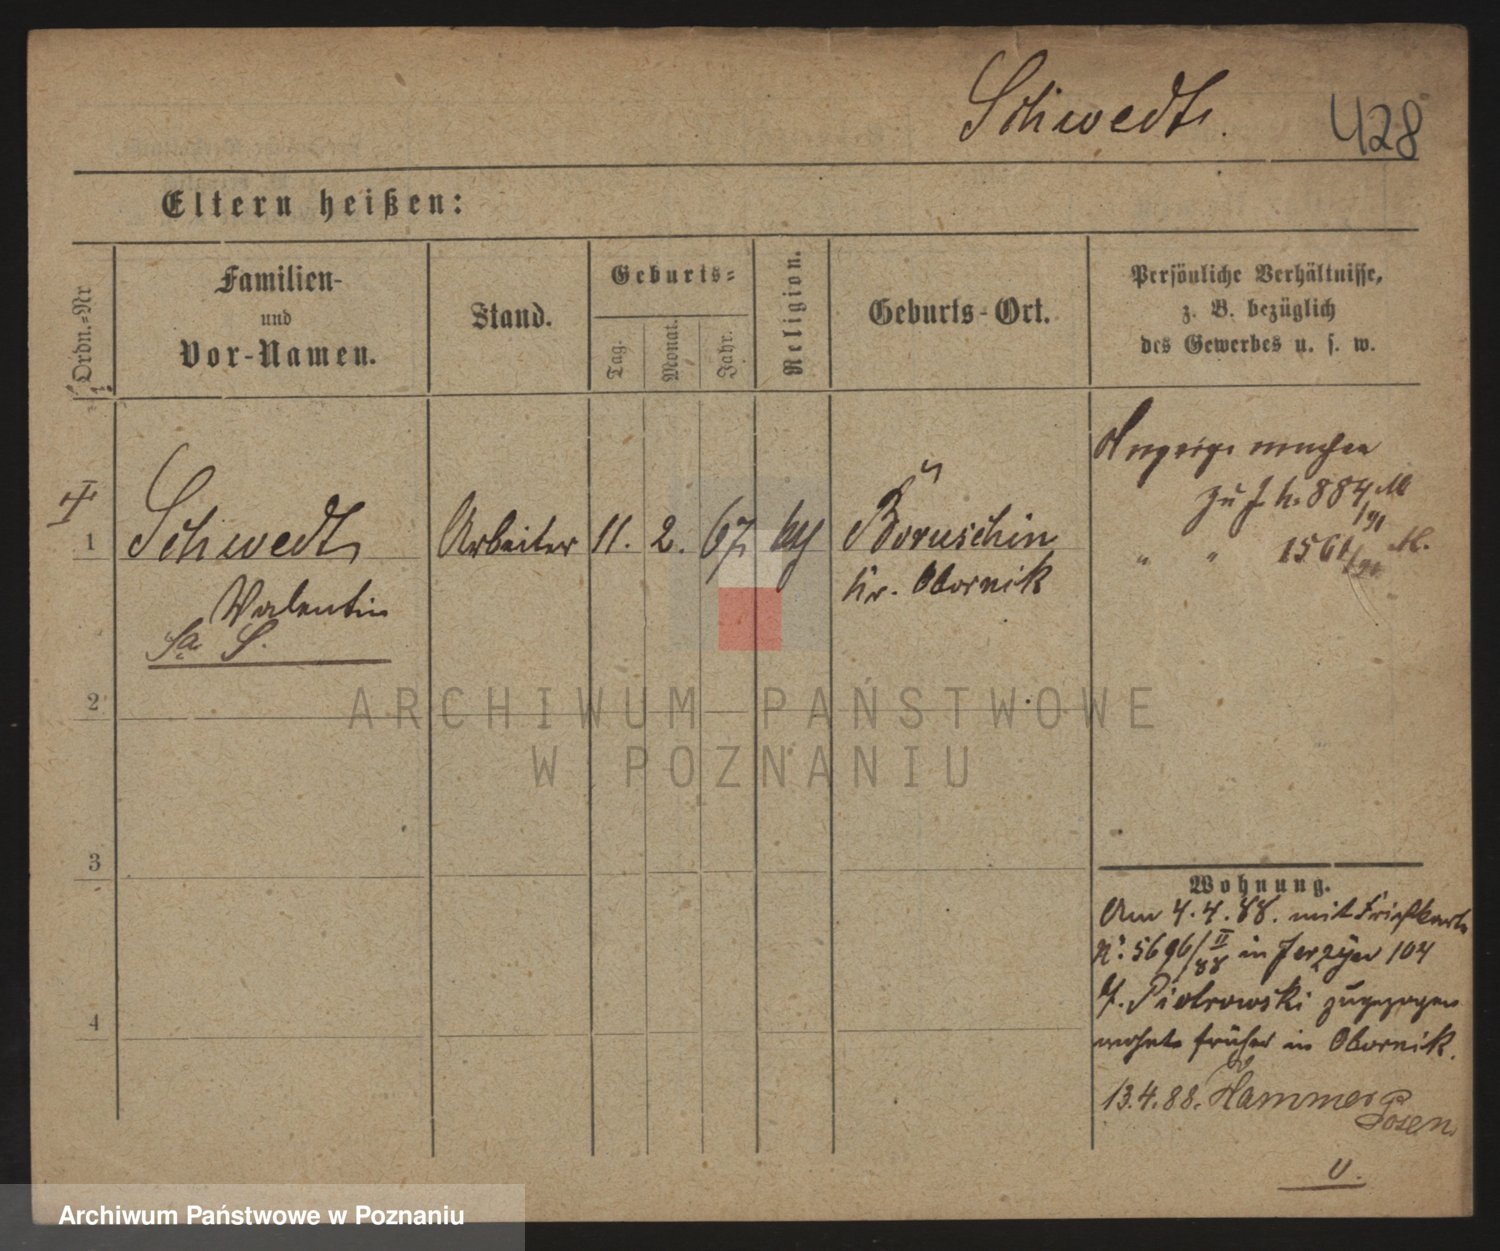 Schwedt.
428
Eltern heißen:
Ordn.-Nr
Familien-
und
Vor-Namen.
Stand.
Geburts-
Tag.
Monat.
Jahr.
Religion.
Geburts-Ort.
Persönliche Verhältnisse,
z. B. bezüglich
des Gewerbes u. s. w.
1
Schwedt,
Valentin
Arbeiter
11.
2.
67,
Boruschin
Kr. Obornik
Anzeige machen
zu J. h. 884/91 M
" " 1561/91 M.
2
3
4
Wohnung.
Am 4.4.88. mit
Nº. 5696/II 88 in Jerzyce 104
Piotrowski zugezogen
wohnte früher in Obornik.
13.4.88. Hammer
Posen
ARCHIWUM PAŃSTWOWE
W POZNANIU
Archiwum Państwowe w Poznaniu